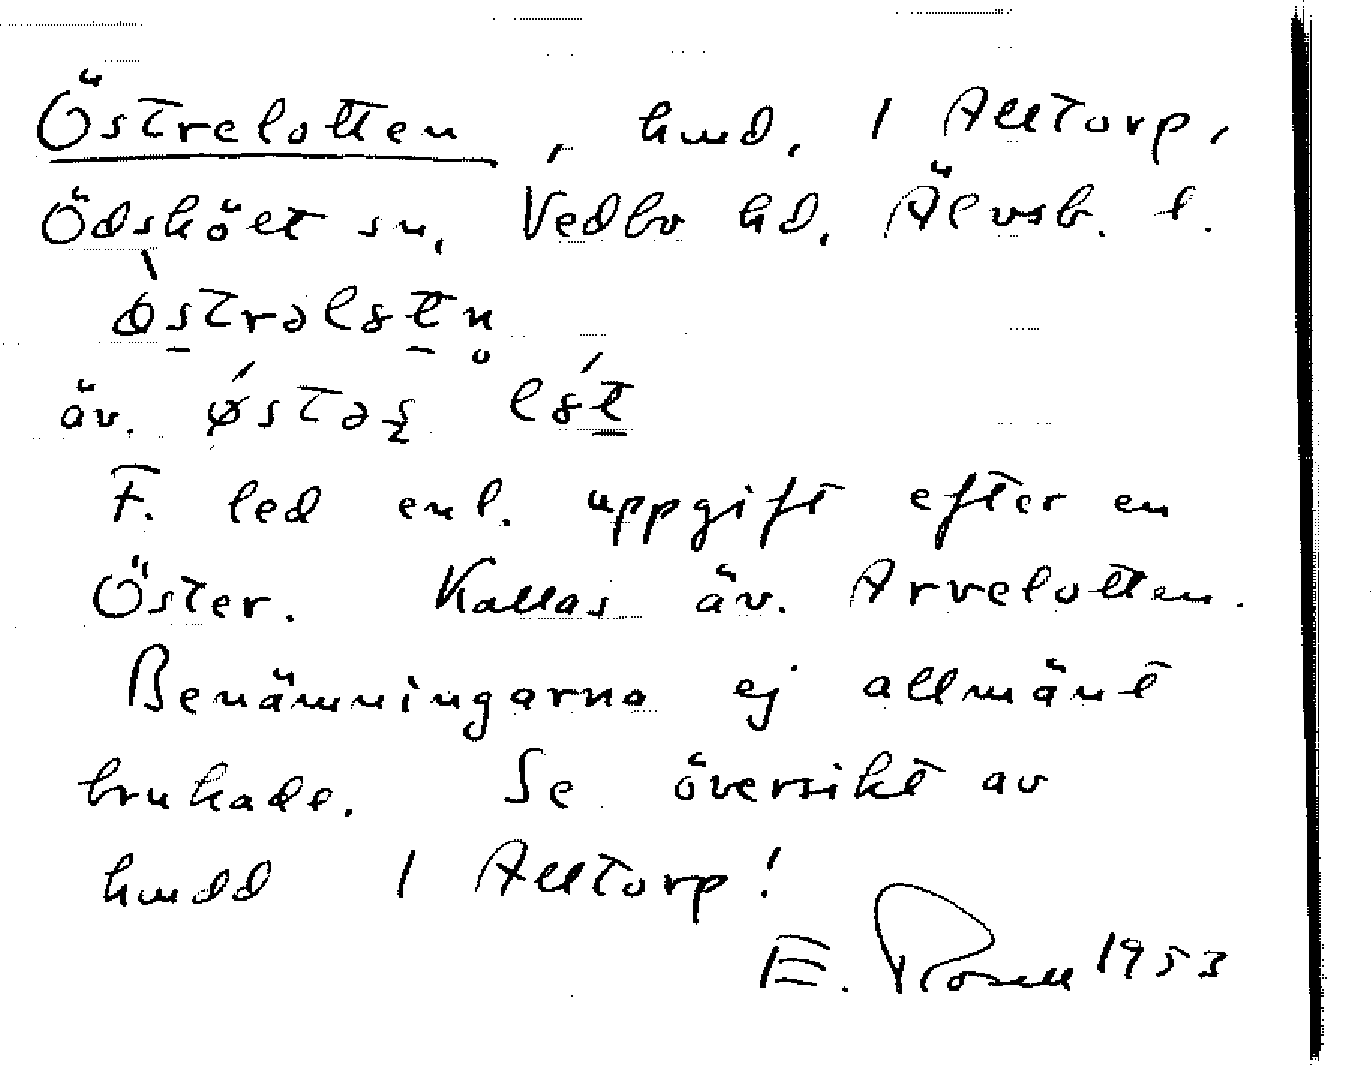 Östrelotten, hmd, 1 Alltorp,
Ödskölt sn, Vedbo hd, Älvsb. l.
äv.
F. led enl. uppgift efter en
Öster. Kallas äv. Arvelotten.
Benämningarna ej allmänt
brukade. Se översikt av
hmdd 1 Alltorp!
E. Rosell 1953